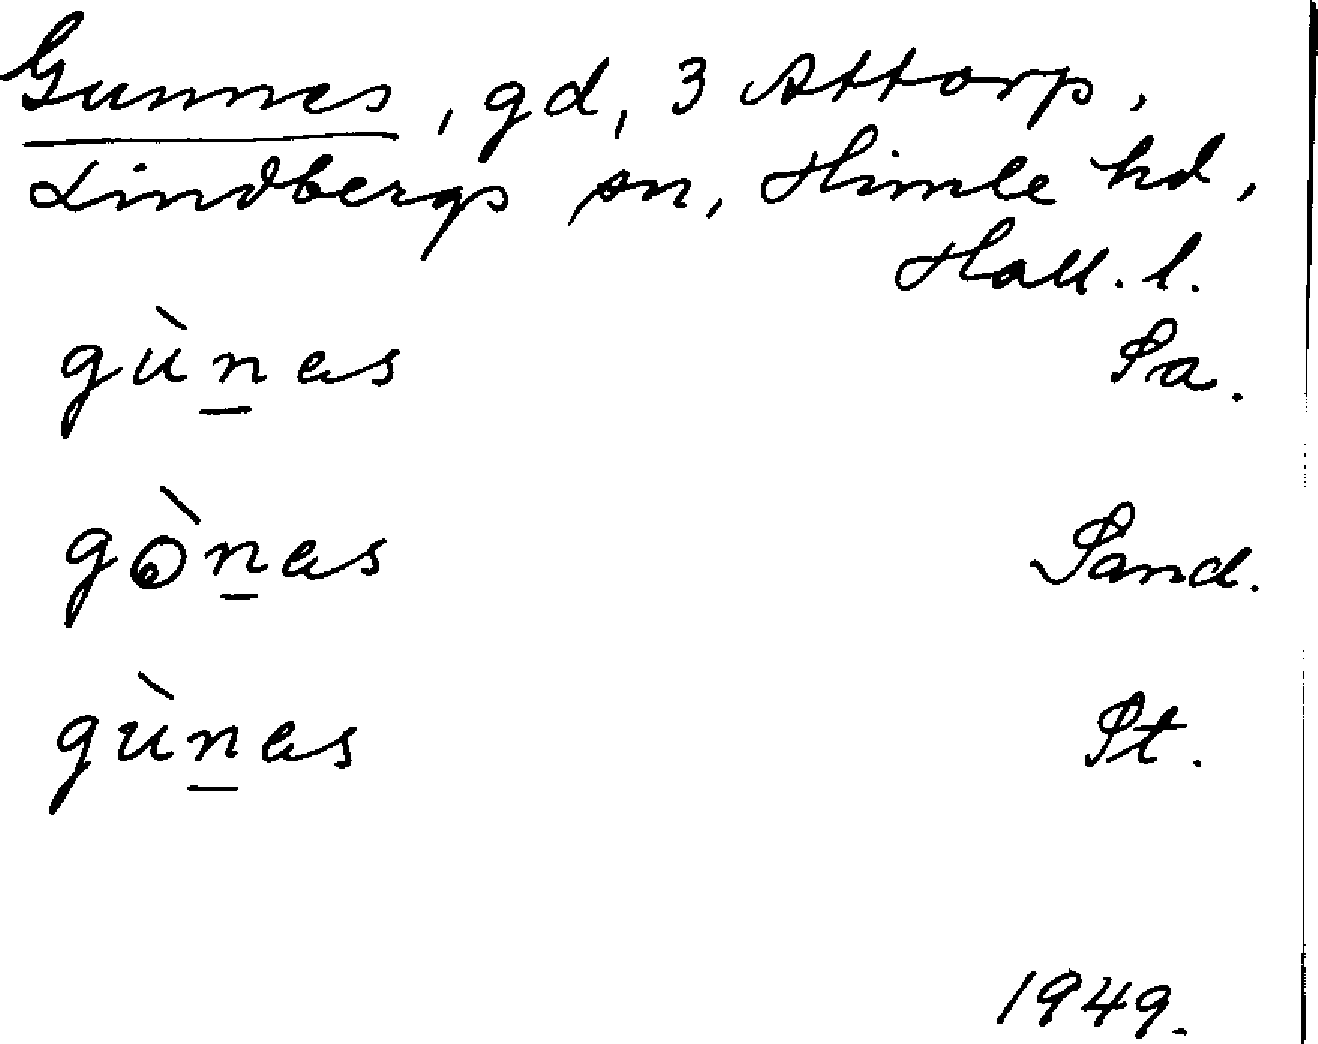 Gunnes, gd, 3 Attorp,
Lindbergs sn, Himle hd,
Hall. l.
gùn̲as Sa.
gòn̲as Sand.
gùn̲as St.
1949.